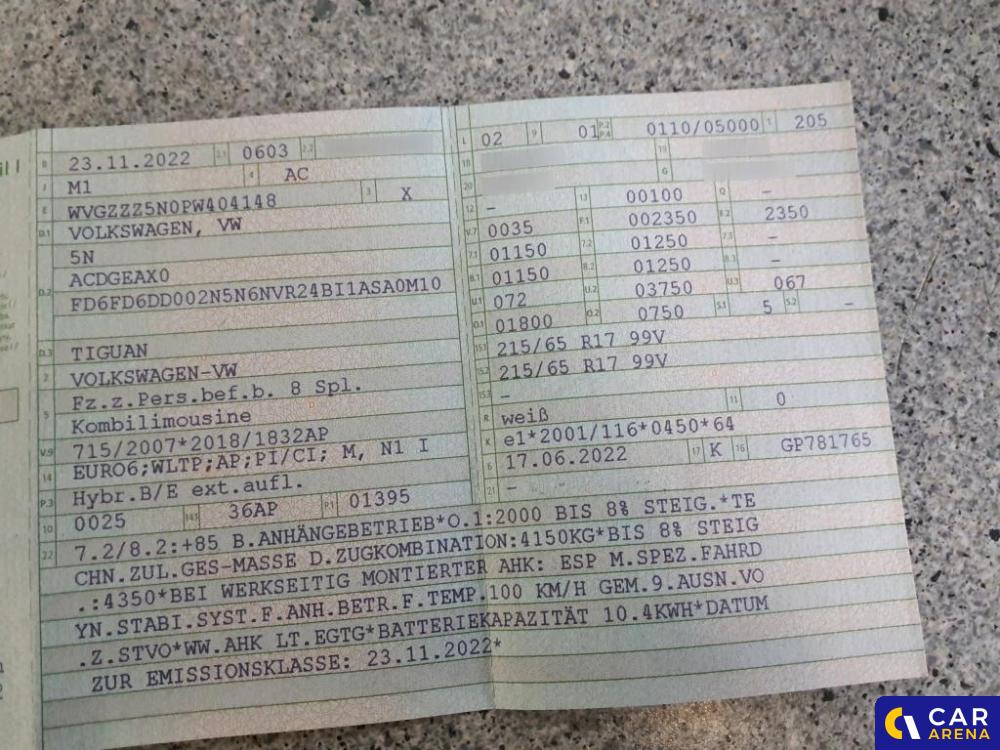 B 23.11.2022 2.1 0603 2.2
J M1 4 AC
E WVGZZZ5N0PW404148 3 X
D.1 VOLKSWAGEN, VW
5N
D.2 ACDGEAX0
FD6FD6DD002N5N6NVR24BI1ASA0M10
D.3 TIGUAN
2 VOLKSWAGEN-VW
5 Fz.z.Pers.bef.b. 8 Spl.
Kombilimousine
V.9 715/2007*2018/1832AP
14 EURO6;WLTP;AP;PI/CI; M, N1 I
P.3 Hybr.B/E ext.aufl.
10 0025 14.1 36AP P.1 01395
L 02 9 01 P.2 P.4 0110/05000 T 205
18 19
20 G
12 – 13 00100 Q –
V.7 0035 F.1 002350 F.2 2350
7.1 01150 7.2 01250 7.3 –
8.1 01150 8.2 01250 8.3 –
U.1 072 U.2 03750 U.3 067
O.1 01800 O.2 0750 S.1 5 S.2 –
15.1 215/65 R17 99V
15.2 215/65 R17 99V
15.3 –
R weiß 11 0
K e1*2001/116*0450*64
6 17.06.2022 17 K 16 GP781765
21 –
22 7.2/8.2:+85 B.ANHÄNGEBETRIEB*O.1:2000 BIS 8% STEIG.*TE
CHN.ZUL.GES-MASSE D.ZUGKOMBINATION:4150KG*BIS 8% STEIG
.:4350*BEI WERKSEITIG MONTIERTER AHK: ESP M.SPEZ.FAHRD
YN.STABI.SYST.F.ANH.BETR.F.TEMP.100 KM/H GEM.9.AUSN.VO
.Z.STVO*WW.AHK LT.EGTG*BATTERIEKAPAZITÄT 10.4KWH*DATUM
ZUR EMISSIONSKLASSE: 23.11.2022*
CAR
ARENA